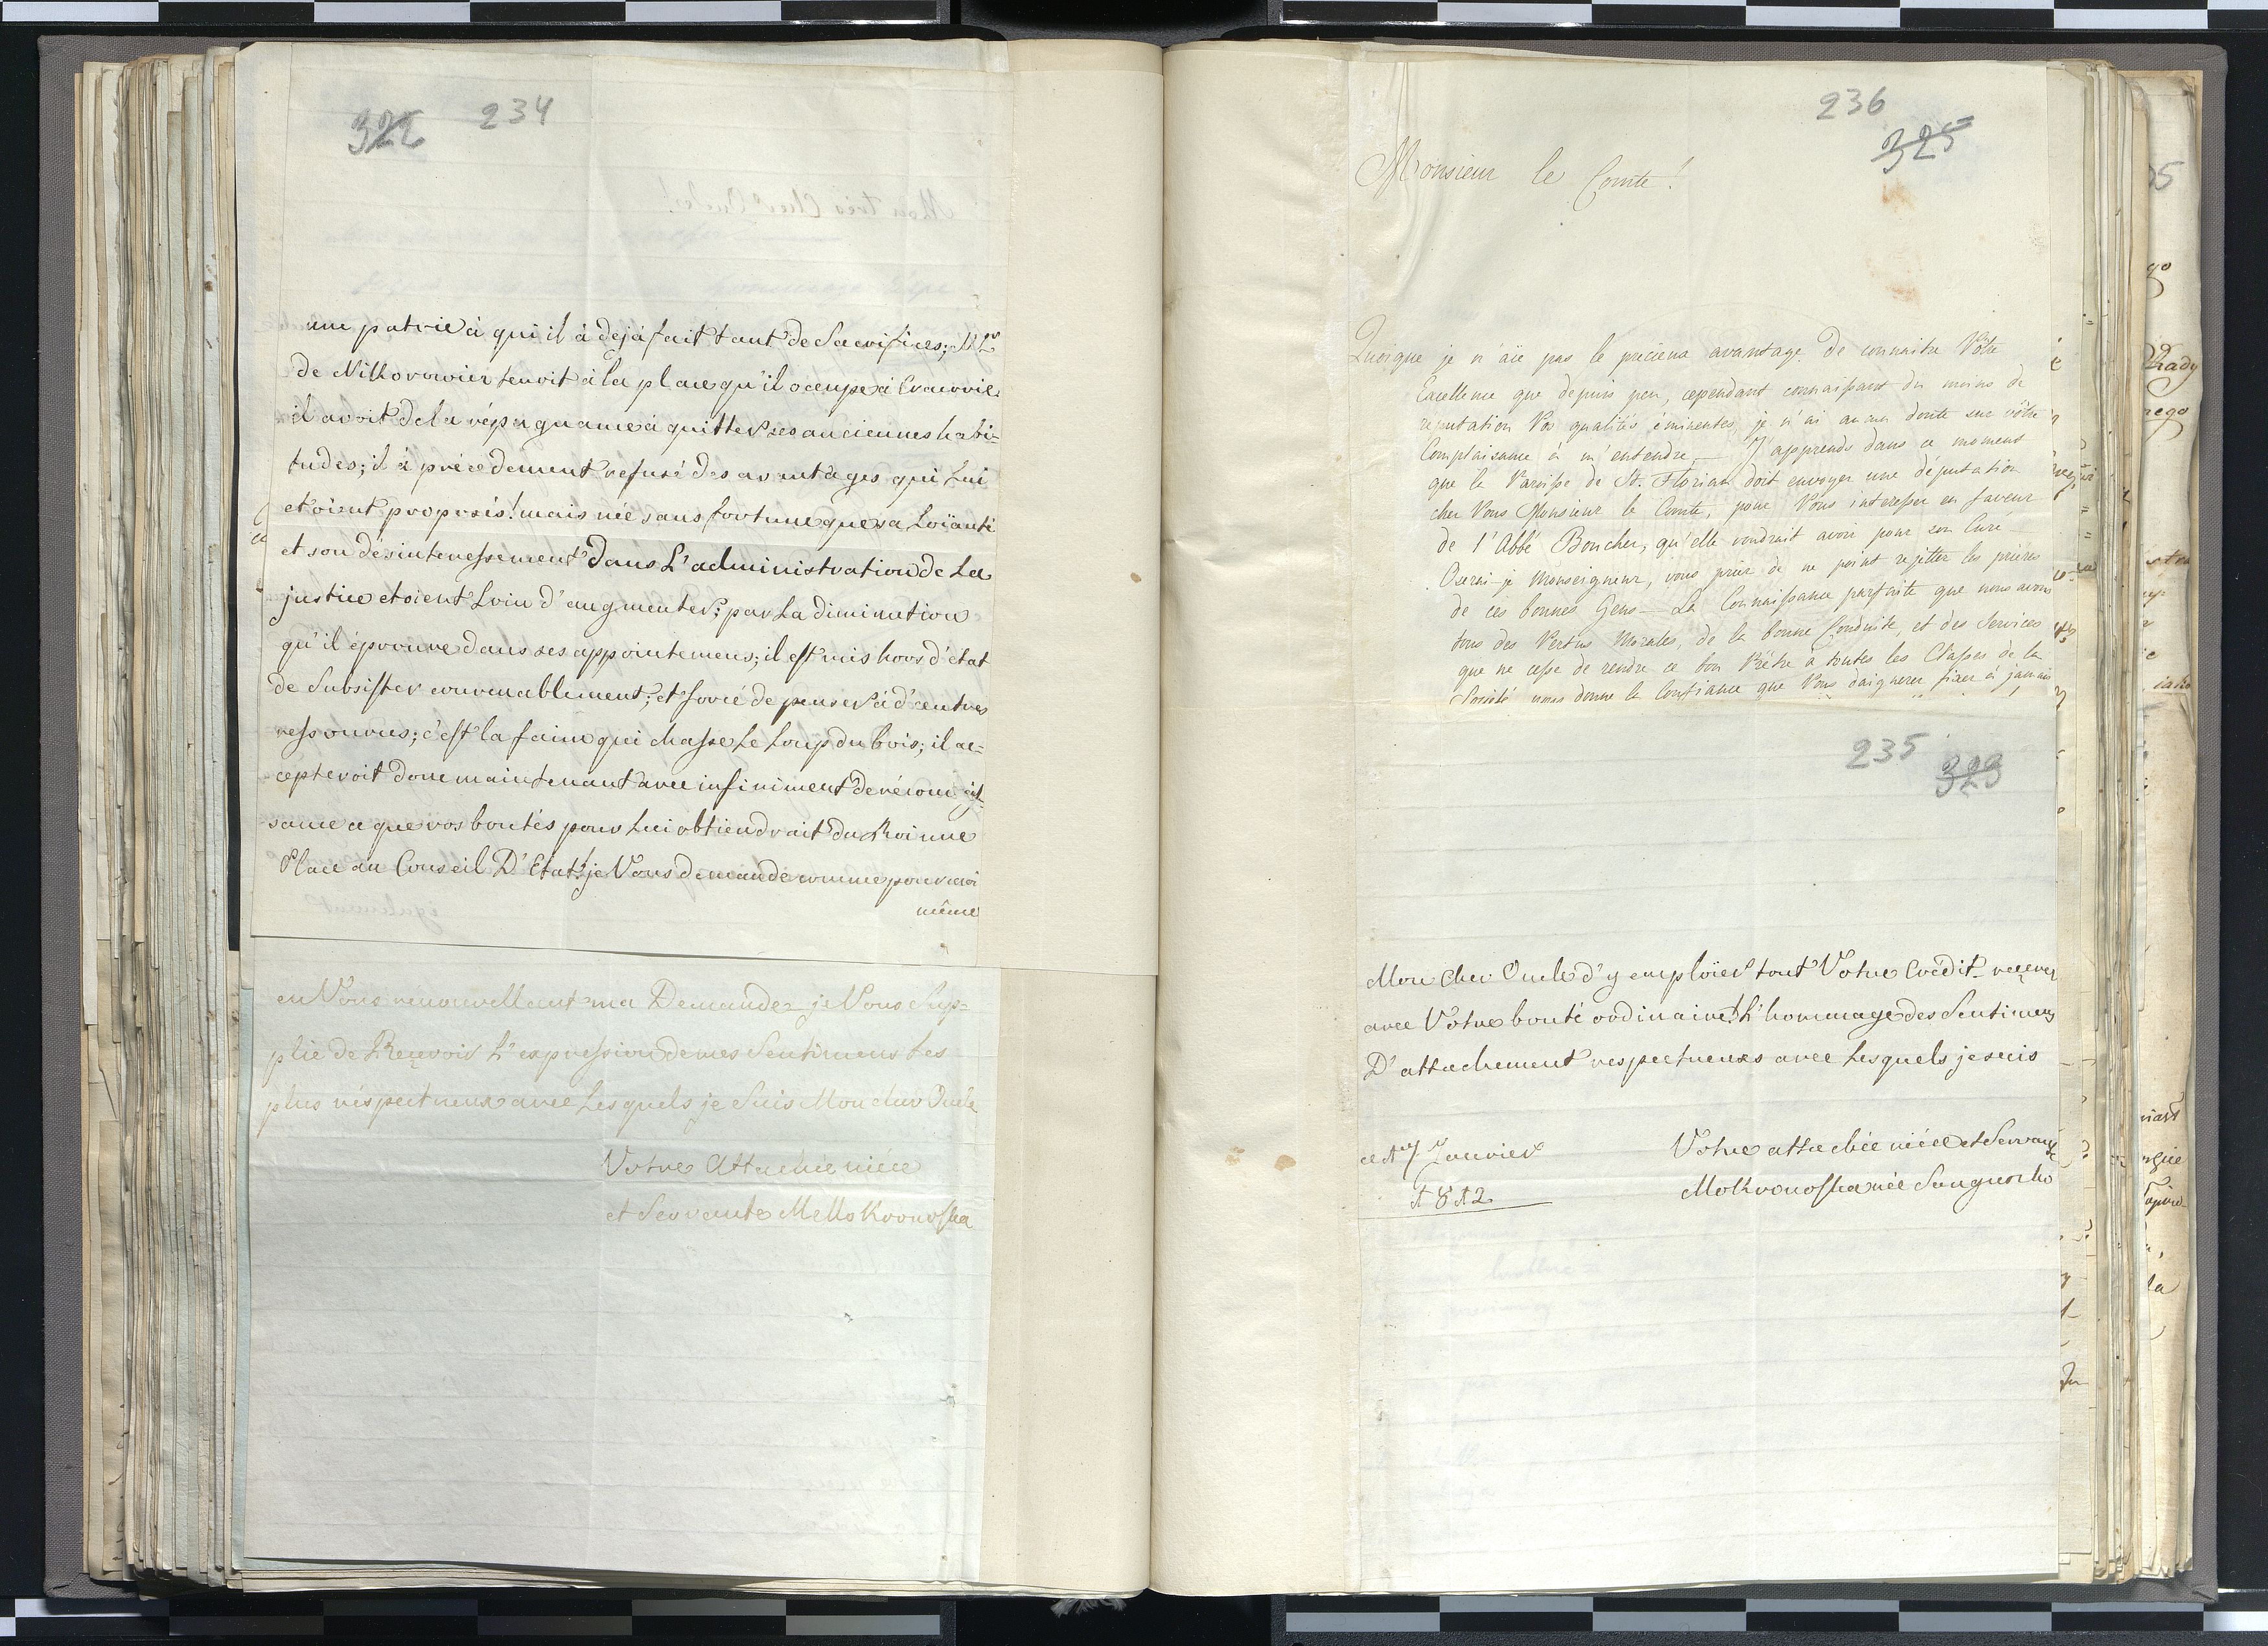 322 234
une patrie à qui il à dejà fait tant de Sacrifices; Mr
de Nikorowier tenoit à la place qu'il occupe à Cracovie.
il avoit de la répugnance à quitter ses anciennes habi-
tudes; il à précedement refusé des avantages qui Lui
etoient proposés! mais née sans fortune que sa Loïauté
et son désinteressement Dans L'administration de La
justice etoient Loin d'augmenter; par La diminution
qu'il éprouve dans ses appointemens; il est mis hors d'état
de Subsister convenablement; et forcé de penser à d'autres
ressources; c'est la faim qui chasse Le Loup du bois; il ac-
cepteroit donc maintenant avec infiniment de réconnois-
sance ce que vos bontés pour Lui obtiendrait du Roi une
Place au Conseil D'Etat! je Vous demande comme pour moi
même
en Vous rénouvellant ma Demande je Vous Sup-
plie de Reçevoir L'expression de mes Sentimens Les
plus réspectueux avec Lesquels je Suis Mon cher Oncle
Votre Attachée niéce
et Servante M Mokronoska
236
325
Monsieur le Comte!
Quoique je n'aïe pas le précieux avantage de connaitre Vôtre
Excellence que depuis peu, cependant connaissant du moins de
reputation Vos qualités éminentes, je n'ai aucun doute sur vôtre
Complaisance à m'entendre. — J'apprends dans ce moment
que la Paroisse de St. Florian doit envoyer une députation
chez Vous Monsieur le Comte, pour Vous interesser en faveur
de l'Abbé Boucher, qu'elle voudrait avoir pour son Curé
Oserai-je Monseigneur, vous prier de ne point rejetter les prières
de ces bonnes Gens — La Connaissance parfaite que nous avons
tous des Vertus Morales, de la bonne Conduite, et des Services
que ne cesse de rendre ce bon Prêtre à toutes les Classes de la
Société nous donne la Confiance que Vous daignerez fixer à jamais
235 323
Mon cher Oncle d'y emploïer tout Votre Crédit recevez
avec Votre bonté ordinaire! L'hommage des Sentimens
D'attachement respectueuxs avec Lesquels je suis
Votre attachée niéce et Servante
Janvier
1812
Mokronoska née Sanguszko